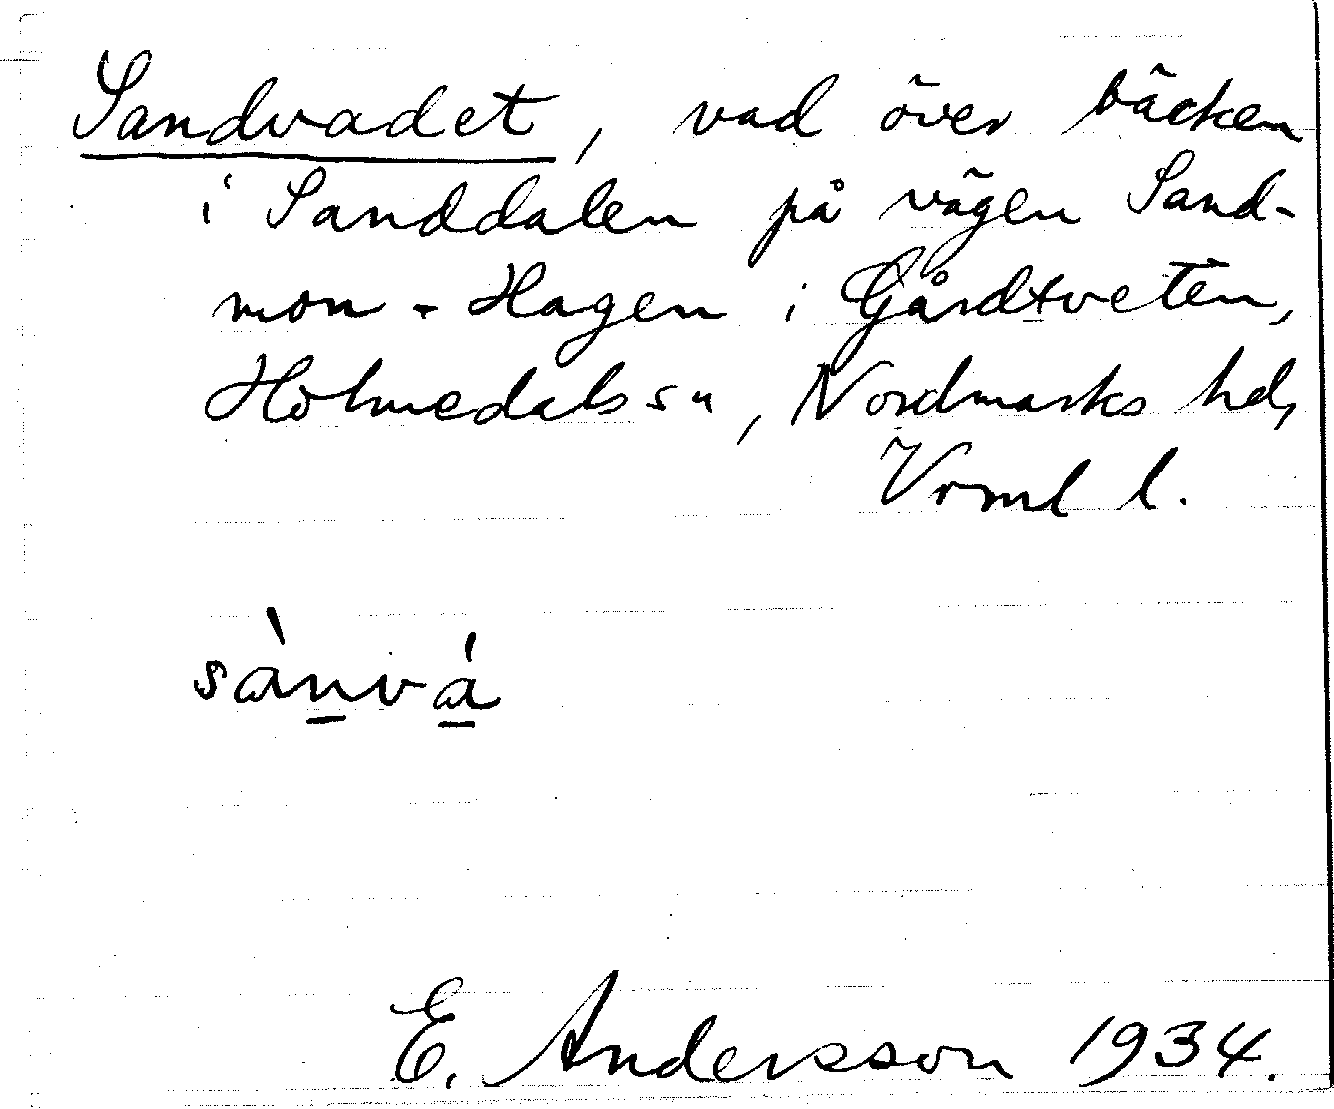 Sandvadet, vad över bäcken
i Sanddalen på vägen Sand-
mon - Hagen i Gårdtveten,
Holmedals sn, Nordmarks hd,
Vrml l.
sànvá
E. Andersson 1934.